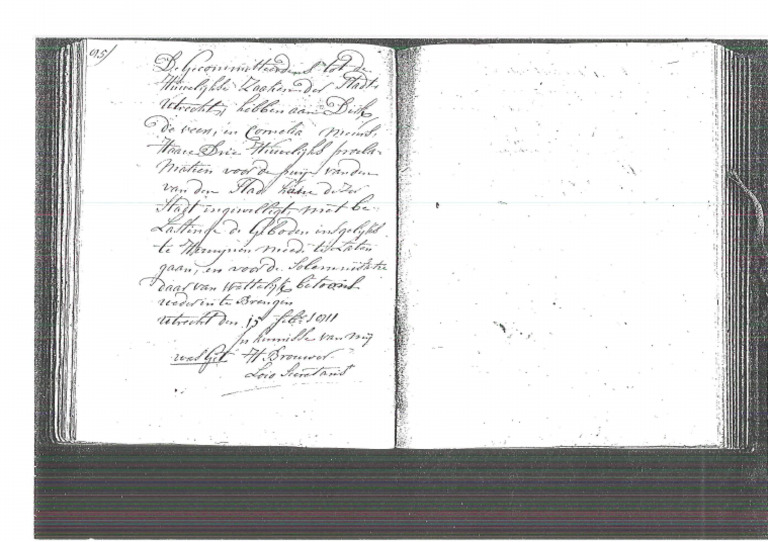 95/
De Gecommitteerdens tot de
Huwelijkse Zaaken der Stadt
Utrecht, hebben aan Dirk
de veen, en Cornelia
Haare Drie Huwelijks procla
matien voor de puije van den
van den Stad
Stadt ingewilligt, met be-
Lastende de Geboden insgelijks
te mede te laten
gaan, en voor de Solemnisatie
daar van wettelijk betoond
weder in te Brengen
Utrecht den 15 feb: 1811
In kennisse van mij
was get H. Brouwer
Loco Secretaris